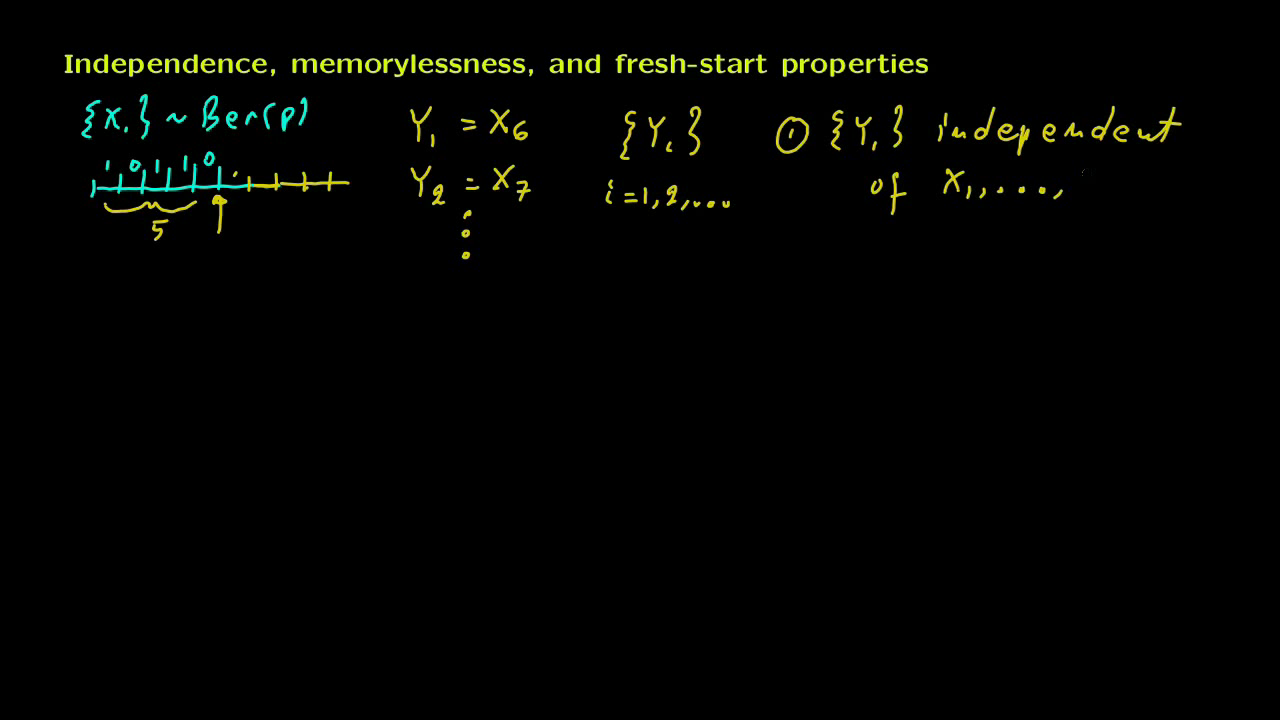 Independence, memorylessness, and fresh-start properties
{X_i} ~ Ber(p)
1 0 1 1 0
5
Y_1 = X_6
Y_2 = X_7
{Y_i}
i = 1, 2, ...
① {Y_i} independent
of X_1, ...,